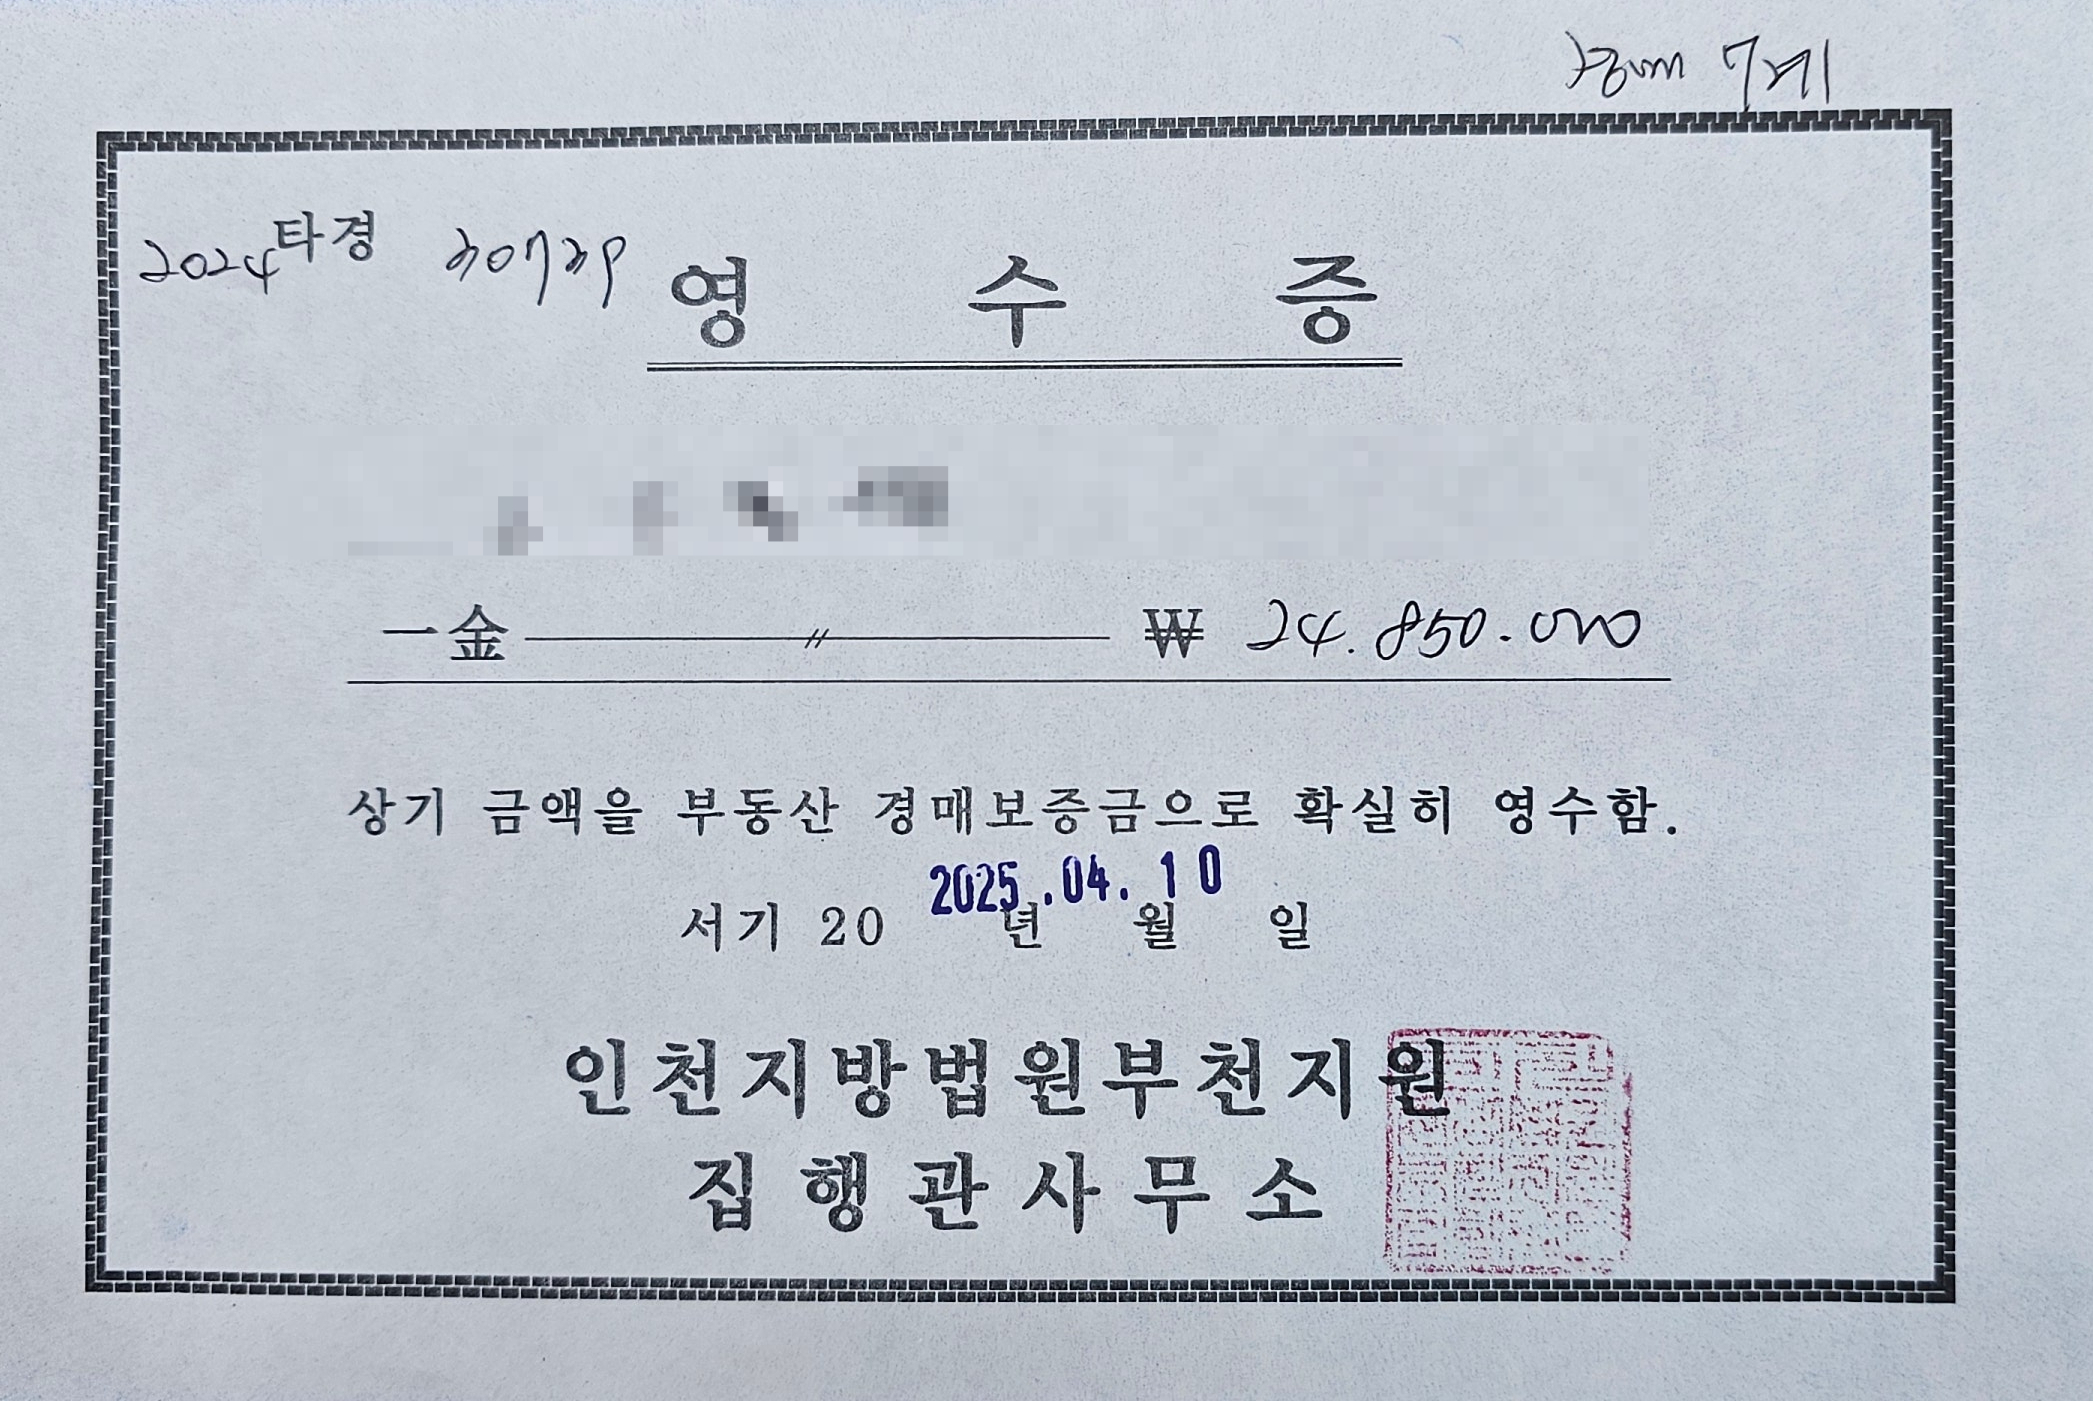 경매 7계
2024타경 30729
영 수 증
一金 〃 ₩ 24.850.000
상기 금액을 부동산 경매보증금으로 확실히 영수함.
2025.04.10
서기 20 년 월 일
인천지방법원부천지원
집행관사무소